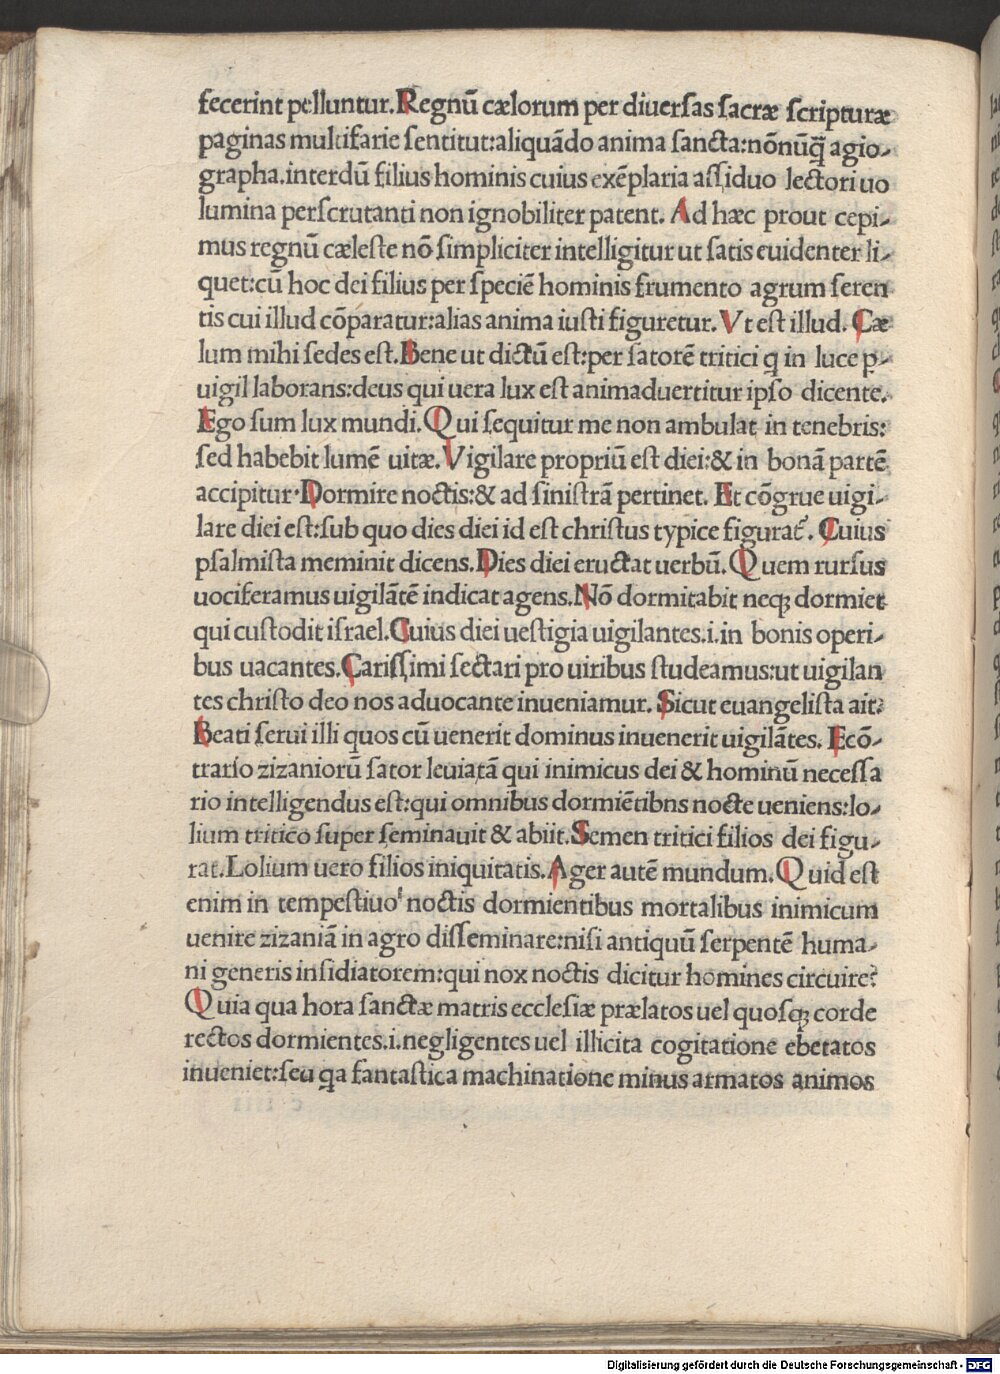 fecerint pelluntur. Regnū cælorum per diuersas sacræ scripturæ
paginas multifarie sentitut: aliquādo anima sancta: nōnūq̄ agio-
grapha. interdū filius hominis cuius exēplaria assiduo lectori uo
lumina perscrutanti non ignobiliter patent. Ad hæc prout cepi-
mus regnū cæleste nō simpliciter intelligitur ut satis euidenter li-
quet: cū hoc dei filius per speciē hominis frumento agrum seren
tis cui illud cōparatur: alias anima iusti figuretur. Vt est illud. Cæ
lum mihi sedes est. Bene ut dictū est: per satorē tritici q in luce p-
uigil laborans: deus qui uera lux est animaduertitur ipso dicente.
Ego sum lux mundi. Qui sequitur me non ambulat in tenebris:
sed habebit lumē uitæ. Vigilare propriū est diei: & in bonā partē
accipitur. Dormire noctis: & ad sinistrā pertinet. Et cōgrue uigi-
lare diei est: sub quo dies diei id est christus typice figurat᷑. Cuius
psalmista meminit dicens. Dies diei eructat uerbū. Quem rursus
uociferamus uigilātē indicat agens. Nō dormitabit neqꝫ dormiet
qui custodit israel. Cuius diei uestigia uigilantes .i. in bonis operi-
bus uacantes. Carissimi sectari pro uiribus studeamus: ut uigilan
tes christo deo nos aduocante inueniamur. Sicut euangelista ait:
Beati serui illi quos cū uenerit dominus inuenerit uigilātes. Ecō-
trario zizaniorū sator leuiatā qui inimicus dei & hominū necessa
rio intelligendus est: qui omnibus dormiētibns nocte ueniens: lo-
lium tritico super seminauit & abiit. Semen tritici filios dei figu-
rat. Lolium uero filios iniquitatis. Ager autē mundum. Quid est
enim in tempestiuo noctis dormientibus mortalibus inimicum
uenire zizaniā in agro disseminare: nisi antiquū serpentē huma-
ni generis insidiatorem: qui nox noctis dicitur homines circuire?
Quia qua hora sanctæ matris ecclesiæ prælatos uel quosqꝫ corde
rectos dormientes .i. negligentes uel illicita cogitatione ebetatos
inueniet: seu qa fantastica machinatione minus armatos animos
Digitalisierung gefördert durch die Deutsche Forschungsgemeinschaft - DFG